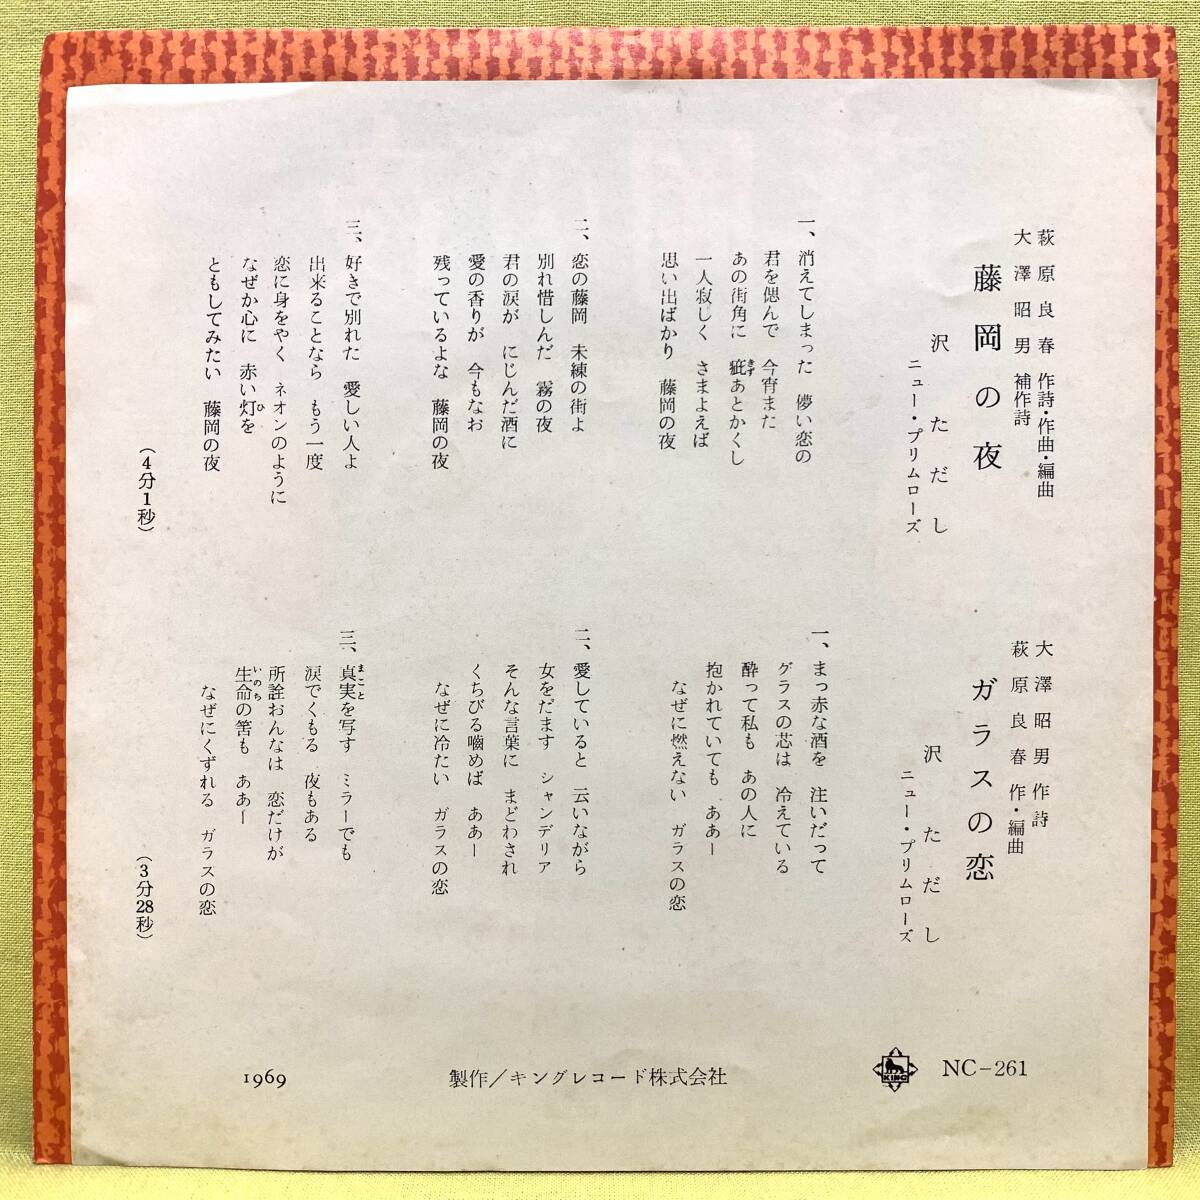 萩原良春 作詩・作曲・編曲
大澤昭男 補作詩
藤岡の夜
沢ただし
ニュー・プリムローズ
一、消えてしまった 儚い恋の
君を偲んで 今宵また
あの街角に 疵あとかくし
きず
一人寂しく さまよえば
思い出ばかり 藤岡の夜
二、恋の藤岡 未練の街よ
別れ惜しんだ 霧の夜
君の涙が にじんだ酒に
愛の香りが 今もなお
残っているよな 藤岡の夜
三、好きで別れた 愛しい人よ
出来ることなら もう一度
恋に身をやく ネオンのように
なぜか心に 赤い灯を
ひ
ともしてみたい 藤岡の夜
(4分1秒)
大澤昭男 作詩
萩原良春 作・編曲
ガラスの恋
沢ただし
ニュー・プリムローズ
一、まっ赤な酒を 注いだって
グラスの芯は 冷えている
酔って私も あの人に
抱かれていても ああー
なぜに燃えない ガラスの恋
二、愛していると 云いながら
女をだます シャンデリア
そんな言葉に まどわされ
くちびる嚙めば ああー
なぜに冷たい ガラスの恋
三、真実を写す ミラーでも
まこと
涙でくもる 夜もある
所詮おんなは 恋だけが
生命の筈も ああー
いのち
なぜにくずれる ガラスの恋
(3分28秒)
KING
NC-261
製作/キングレコード株式会社
1969